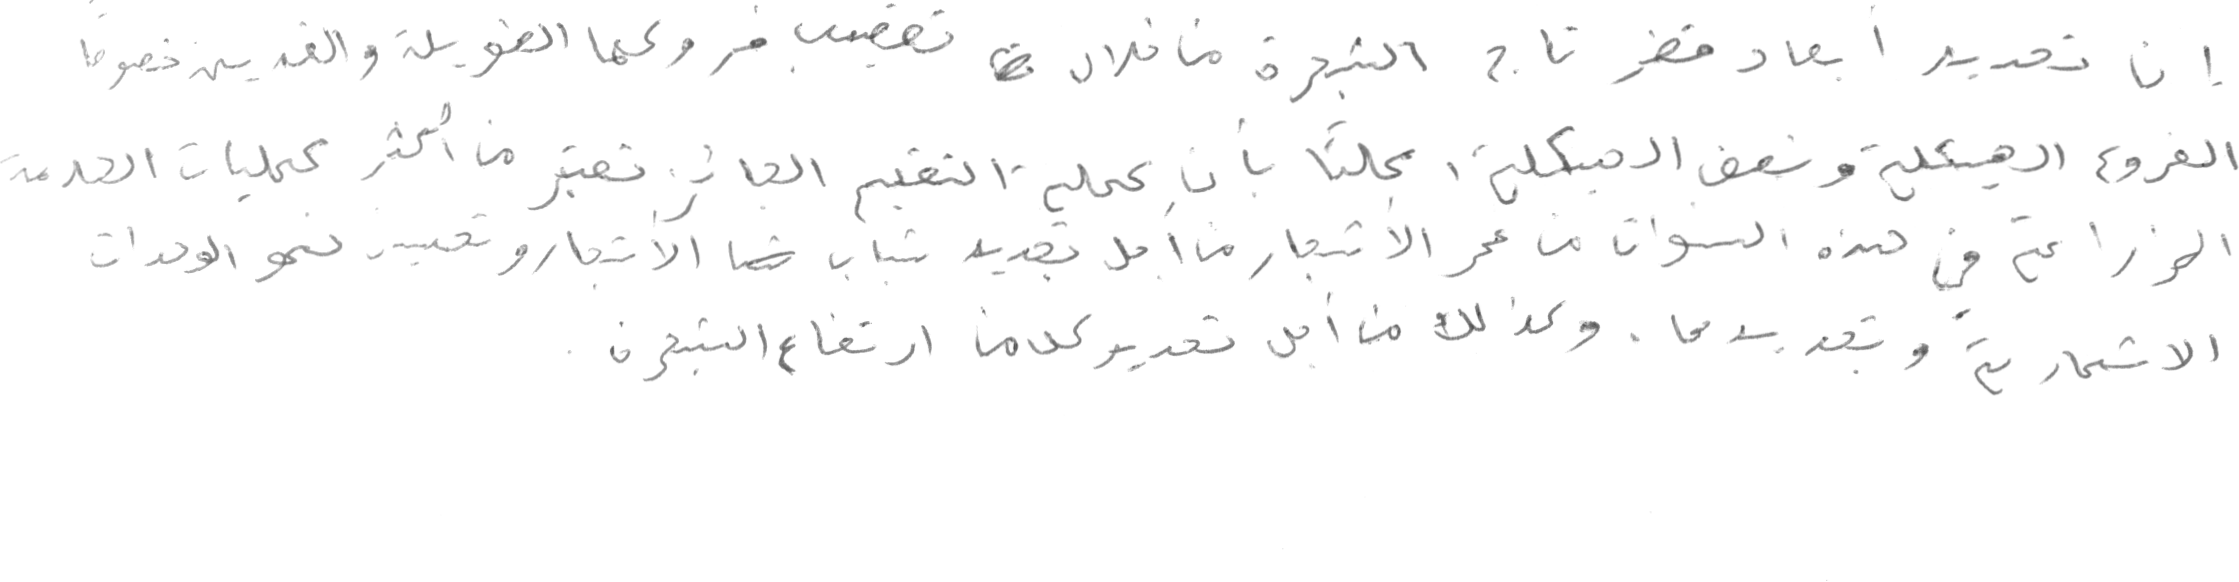 إن تحديد أبعاد قطر تاج الشجرة من خلال تقصيب فروعها الطويلة والقديمة خصوصاً
الفروع الهيكلية ونصف الهيكلية، علماً بأن عملية التقليم الجائر، تعتبر من أكثر عمليات الخدمة
الزراعية في هذه السنوات من عمر الأشجار من أجل تجديد شباب الأشجار وتحسين نمو الوحدات
الاثمارية وتجديدها. وكذلك من أجل تحديد كلا من ارتفاع الشجرة.